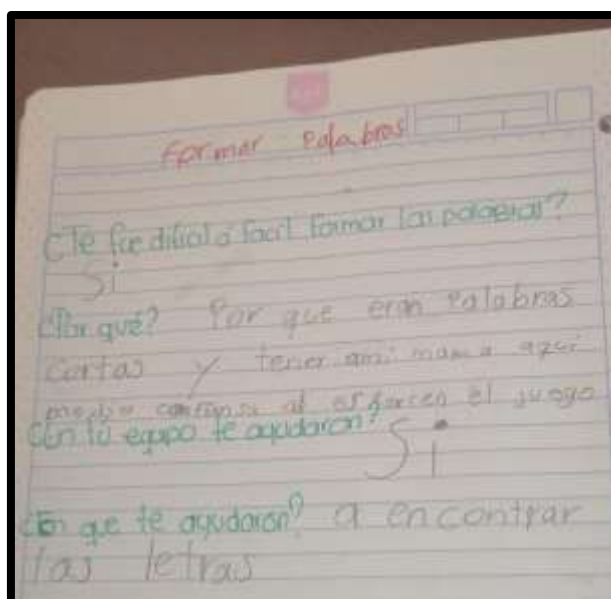 Formar palabras
¿Te fue dificil o facil formar las palabras?
Si
¿Por qué? Por que eran palabras
Cortas y tener ami mama aqui
me dio confiansa al el juego
¿En tu equipo te ayudaron? Si
¿En que te ayudaron? a encontrar
las letras